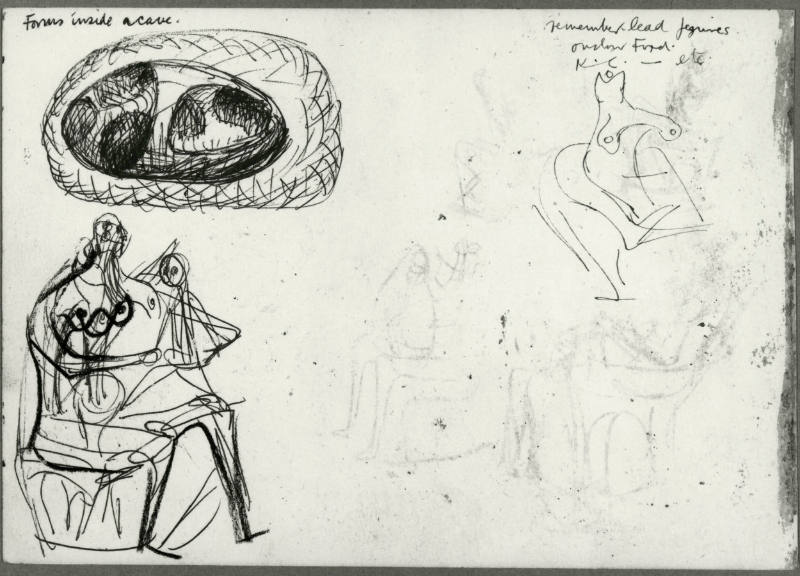 Forms inside a cave.
remember lead figures
onslow Ford.
K. C. — etc.